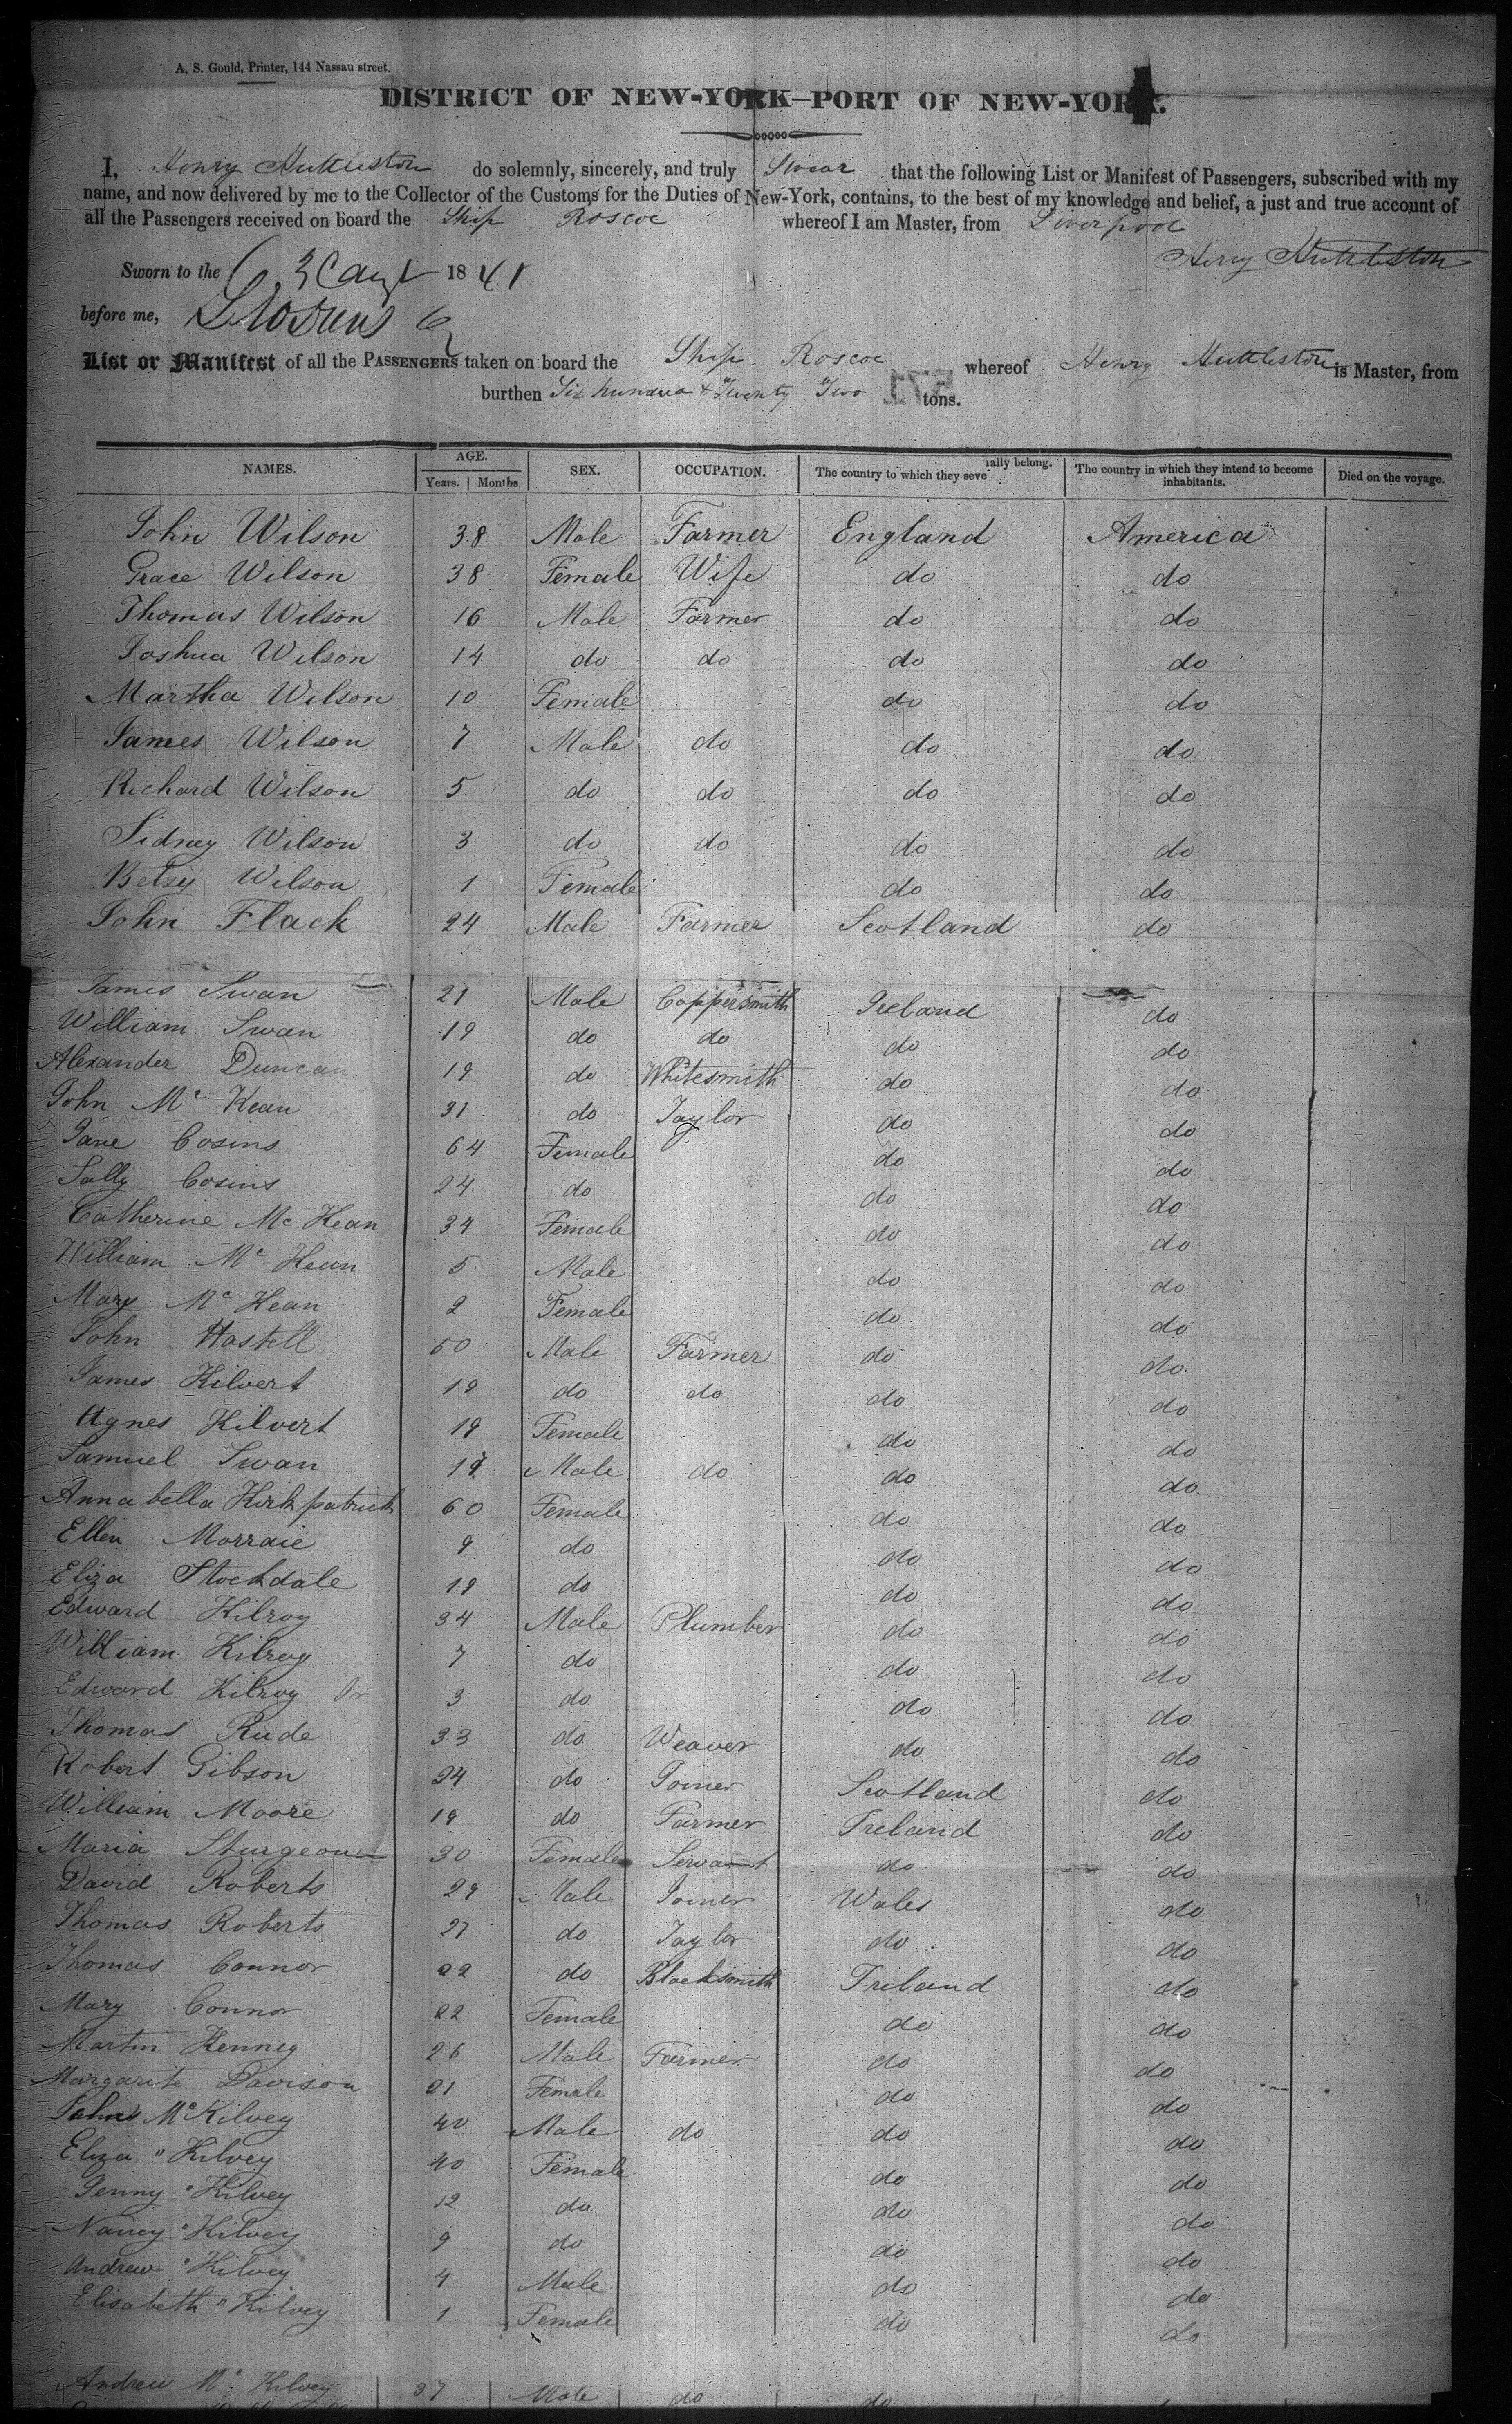 A. S. Gould, Printer, 144 Nassau street.
DISTRICT OF NEW-YORK—PORT OF NEW-YORK.
I, Henry Huttleston do solemnly, sincerely, and truly Swear that the following List or Manifest of Passengers, subscribed with my
name, and now delivered by me to the Collector of the Customs for the Duties of New-York, contains, to the best of my knowledge and belief, a just and true account of
all the Passengers received on board the Ship Roscoe whereof I am Master, from Liverpool
Henry Huttleston
Sworn to the 1841
before me,
List or Manifest of all the PASSENGERS taken on board the Ship Roscoe whereof Henry Huttleston is Master, from
burthen Six hundred & Twenty Two tons.
NAMES. AGE. Years. Months SEX. OCCUPATION. The country to which they severally belong. The country in which they intend to become inhabitants. Died on the voyage.
John Wilson 38 Male Farmer England America
Grace Wilson 38 Female Wife do do
Thomas Wilson 16 Male Farmer do do
Joshua Wilson 14 do do do do
Martha Wilson 10 Female do do
James Wilson 7 Male do do do
Richard Wilson 5 do do do do
Sidney Wilson 3 do do do do
Betsy Wilson 1 Female do do
John Flack 24 Male Farmer Scotland do
James Swan 21 Male Coppersmith Ireland do
William Swan 19 do do do do
Alexander Duncan 19 do Whitesmith do do
John Mc Kean 31 do Taylor do do
Jane Cosins 64 Female do do
Sally Cosins 24 do do do
Catherine Mc Kean 34 Female do do
William Mc Kean 5 Male do do
Mary Mc Kean 2 Female do do
John Hastell 50 Male Farmer do do
James Kilvert 19 do do do do
Agnes Kilvert 19 Female do do
Samuel Swan 19 Male do do do
Annabella Kirkpatrick 60 Female do do
Ellen Morraie 9 do do do
Eliza Stockdale 19 do do do
Edward Kilroy 34 Male Plumber do do
William Kilroy 7 do do do
Edward Kilroy Jr 3 do do do
Thomas Rude 33 do Weaver do do
Robert Gibson 24 do Joiner Scotland do
William Moore 19 do Farmer Ireland do
Maria Sturgeon 30 Female Servant do do
David Roberts 29 Male Joiner Wales do
Thomas Roberts 27 do Taylor do do
Thomas Connor 22 do Blacksmith Ireland do
Mary Connor 22 Female do do
Martin Kenney 26 Male Farmer do do
Margarite Davison 21 Female do do
John Mc Kilvey 40 Male do do do
Eliza " Kilvey 40 Female do do
Jenny " Kilvey 12 do do do
Nancy " Kilvey 9 do do do
Andrew " Kilvey 4 Male do do
Elisabeth " Kilvey 1 Female do do
Andrew Mc Kilvey 37 Male do do